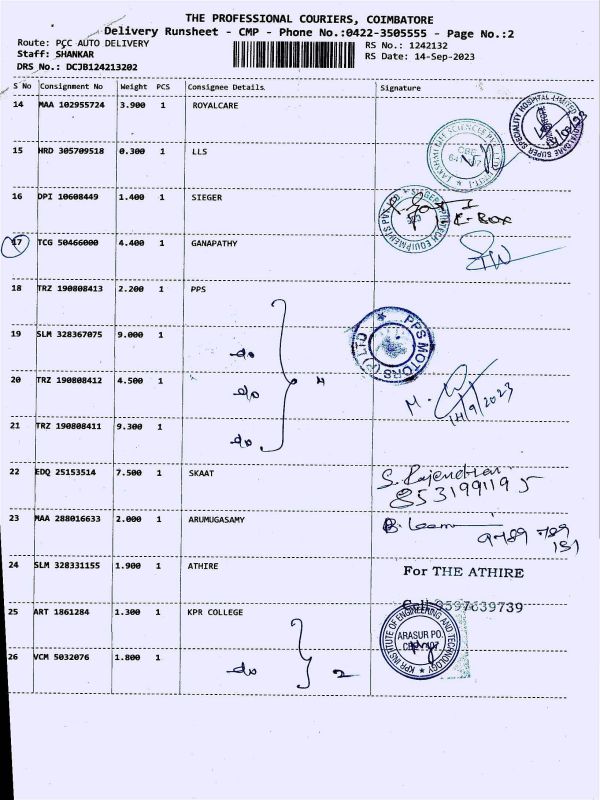 THE PROFESSIONAL COURIERS, COIMBATORE
Delivery Runsheet - CMP - Phone No.:0422-3505555 - Page No.:2
Route: PCC AUTO DELIVERY
Staff: SHANKAR
DRS No.: DCJB124213202
RS No.: 1242132
RS Date: 14-Sep-2023
S No Consignment No Weight PCS Consignee Details Signature
14 MAA 102955724 3.900 1 ROYALCARE
15 HRD 305709518 0.300 1 LLS
16 DPI 10608449 1.400 1 SIEGER
K-BOX
17 TCG 50466000 4.400 1 GANAPATHY
18 TRZ 190808413 2.200 1 PPS
PPS MOTORS (P) LTD
19 SLM 328367075 9.000 1 do
20 TRZ 190808412 4.500 1 do 4
M.
14/9/2023
21 TRZ 190808411 9.300 1 do
22 EDQ 25153514 7.500 1 SKAAT
S. Rajendran
8531991195
23 MAA 288016633 2.000 1 ARUMUGASAMY
9789 789
151
24 SLM 328331155 1.900 1 ATHIRE
For THE ATHIRE
Cell:9597639739
25 ART 1861284 1.300 1 KPR COLLEGE
KPR INSTITUTE OF ENGINEERING AND TECHNOLOGY
ARASUR PO.
26 VCM 5032076 1.800 1 do 2